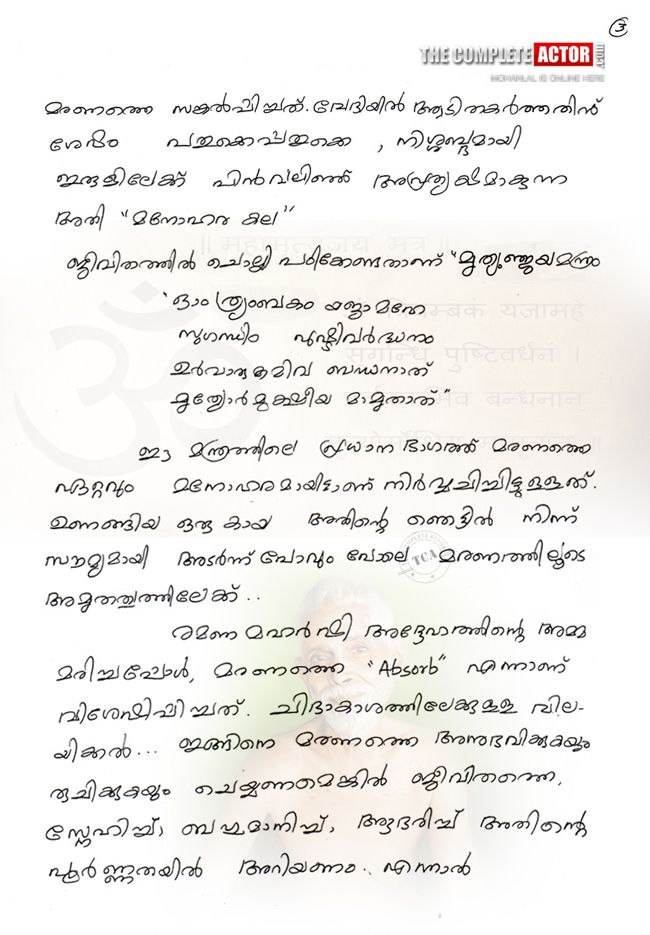 3
THE COMPLETE ACTOR .com
MOHANLAL IS ONLINE HERE
മരണത്തെ സങ്കൽപ്പിച്ചത്. വേദിയിൽ ആടിതകർത്തതിന്
ശേഷം പതുക്കെപ്പതുക്കെ, നിശ്ശബ്ദമായി
ഇരുളിലേക്ക് പിൻവലിഞ്ഞ് അപ്രത്യക്ഷമാകുന്ന
അതി "മനോഹര കല"
॥ महामृत्युंजय मंत्र ॥
ജീവിതത്തിൽ ചൊല്ലി പഠിക്കേണ്ടതാണ് "മൃത്യുഞ്ജയമന്ത്രം
'ഓം ത്ര്യംബകം യജാമഹേ
यजामहे
സുഗന്ധിം പുഷ്ടിവർദ്ധനം
पुष्टिवर्धनं ।
ഉർവാരുകമിവ ബന്ധനാത്
बन्धनान्
മൃത്യോർമുക്ഷീയ മാമൃതാത്"
ഈ മന്ത്രത്തിലെ പ്രധാനഭാഗത്ത് മരണത്തെ
ഏറ്റവും മനോഹരമായിട്ടാണ് നിർവ്വചിച്ചിട്ടുള്ളത്.
ഉണങ്ങിയ ഒരു കായ അതിന്റെ ഞെട്ടിൽ നിന്ന്
സൗമ്യമായി അടർന്ന് പോവും പോലെ മരണത്തിലൂടെ
TCA
അമൃതത്വത്തിലേക്ക്..
രമണ മഹർഷി അദ്ദേഹത്തിന്റെ അമ്മ
മരിച്ചപ്പോൾ, മരണത്തെ "Absorb" എന്നാണ്
വിശേഷിപ്പിച്ചത്. ചിദാകാശത്തിലേക്കുള്ള വില-
യിക്കൽ... ഇങ്ങിനെ മരണത്തെ അനുഭവിക്കുകയും
രുചിക്കുകയും ചെയ്യണമെങ്കിൽ ജീവിതത്തെ,
സ്നേഹിച്ച്, ബഹുമാനിച്ച്, ആദരിച്ച് അതിന്റെ
പൂർണ്ണതയിൽ അറിയണം.. എന്നാൽ